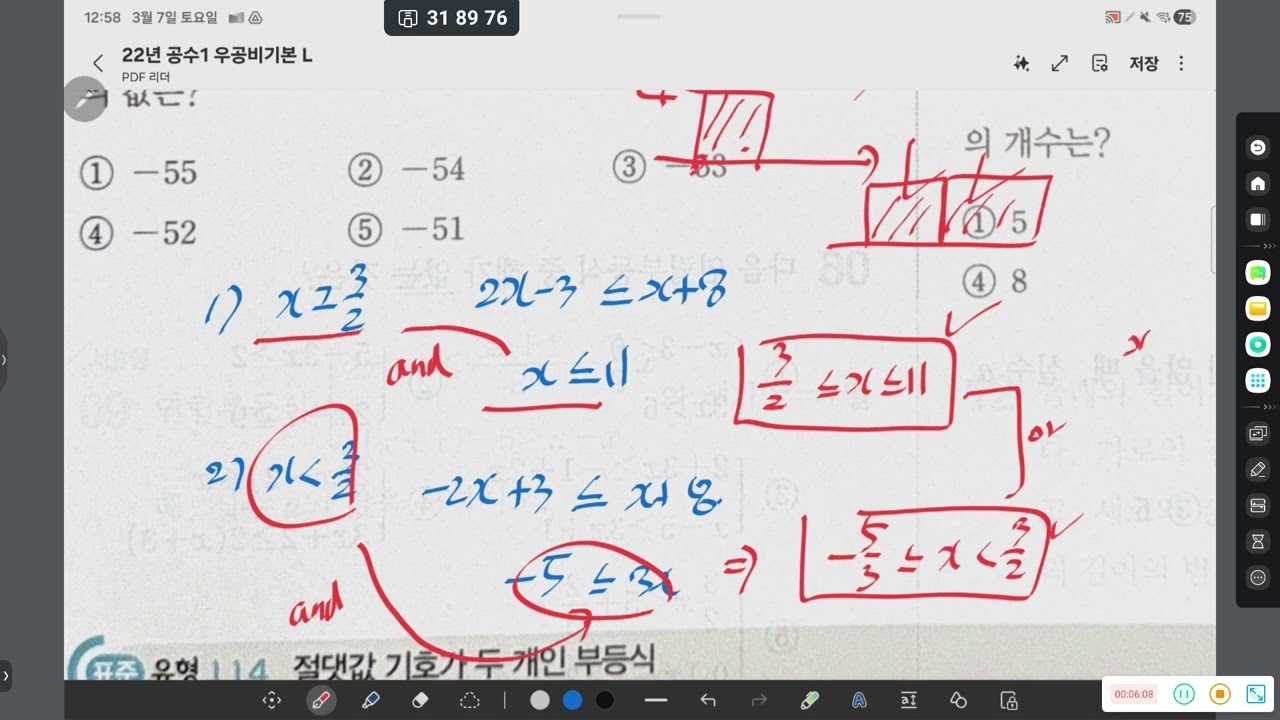 12:58 3월 7일 토요일
31 89 76
75
22년 공수1 우공비기본 L
PDF 리더
저장
의 값은?
① -55 ② -54 ③ -53
④ -52 ⑤ -51
의 개수는?
① 5
④ 8
1) x≥3/2 2x-3 ≤ x+8
and x ≤ 11 3/2 ≤ x ≤ 11
x
or
2) x < 3/2 -2x+3 ≤ x+8
-5 ≤ 3x ⇒ -5/3 ≤ x < 3/2
and
표준 유형 114 절댓값 기호가 두 개인 부등식
00:06:08